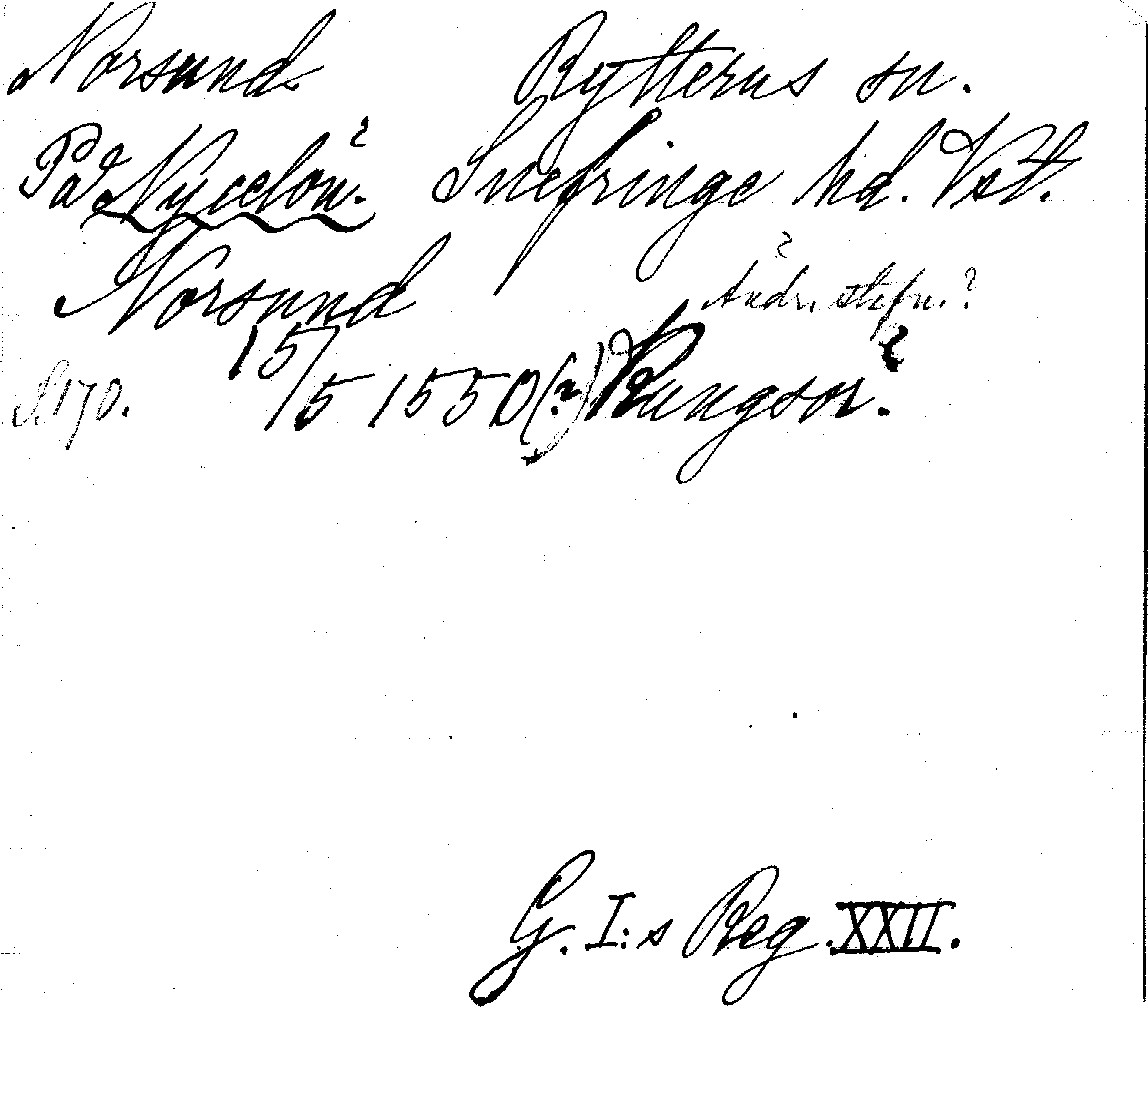 Norsund Rytterns sn.
På Nycelöu. Snefringe hd. Vst.
Norsund Ändr. stefn.?
S. 170. 15/5 1550(?) Kungsör.
G. I:s Reg. XXII.